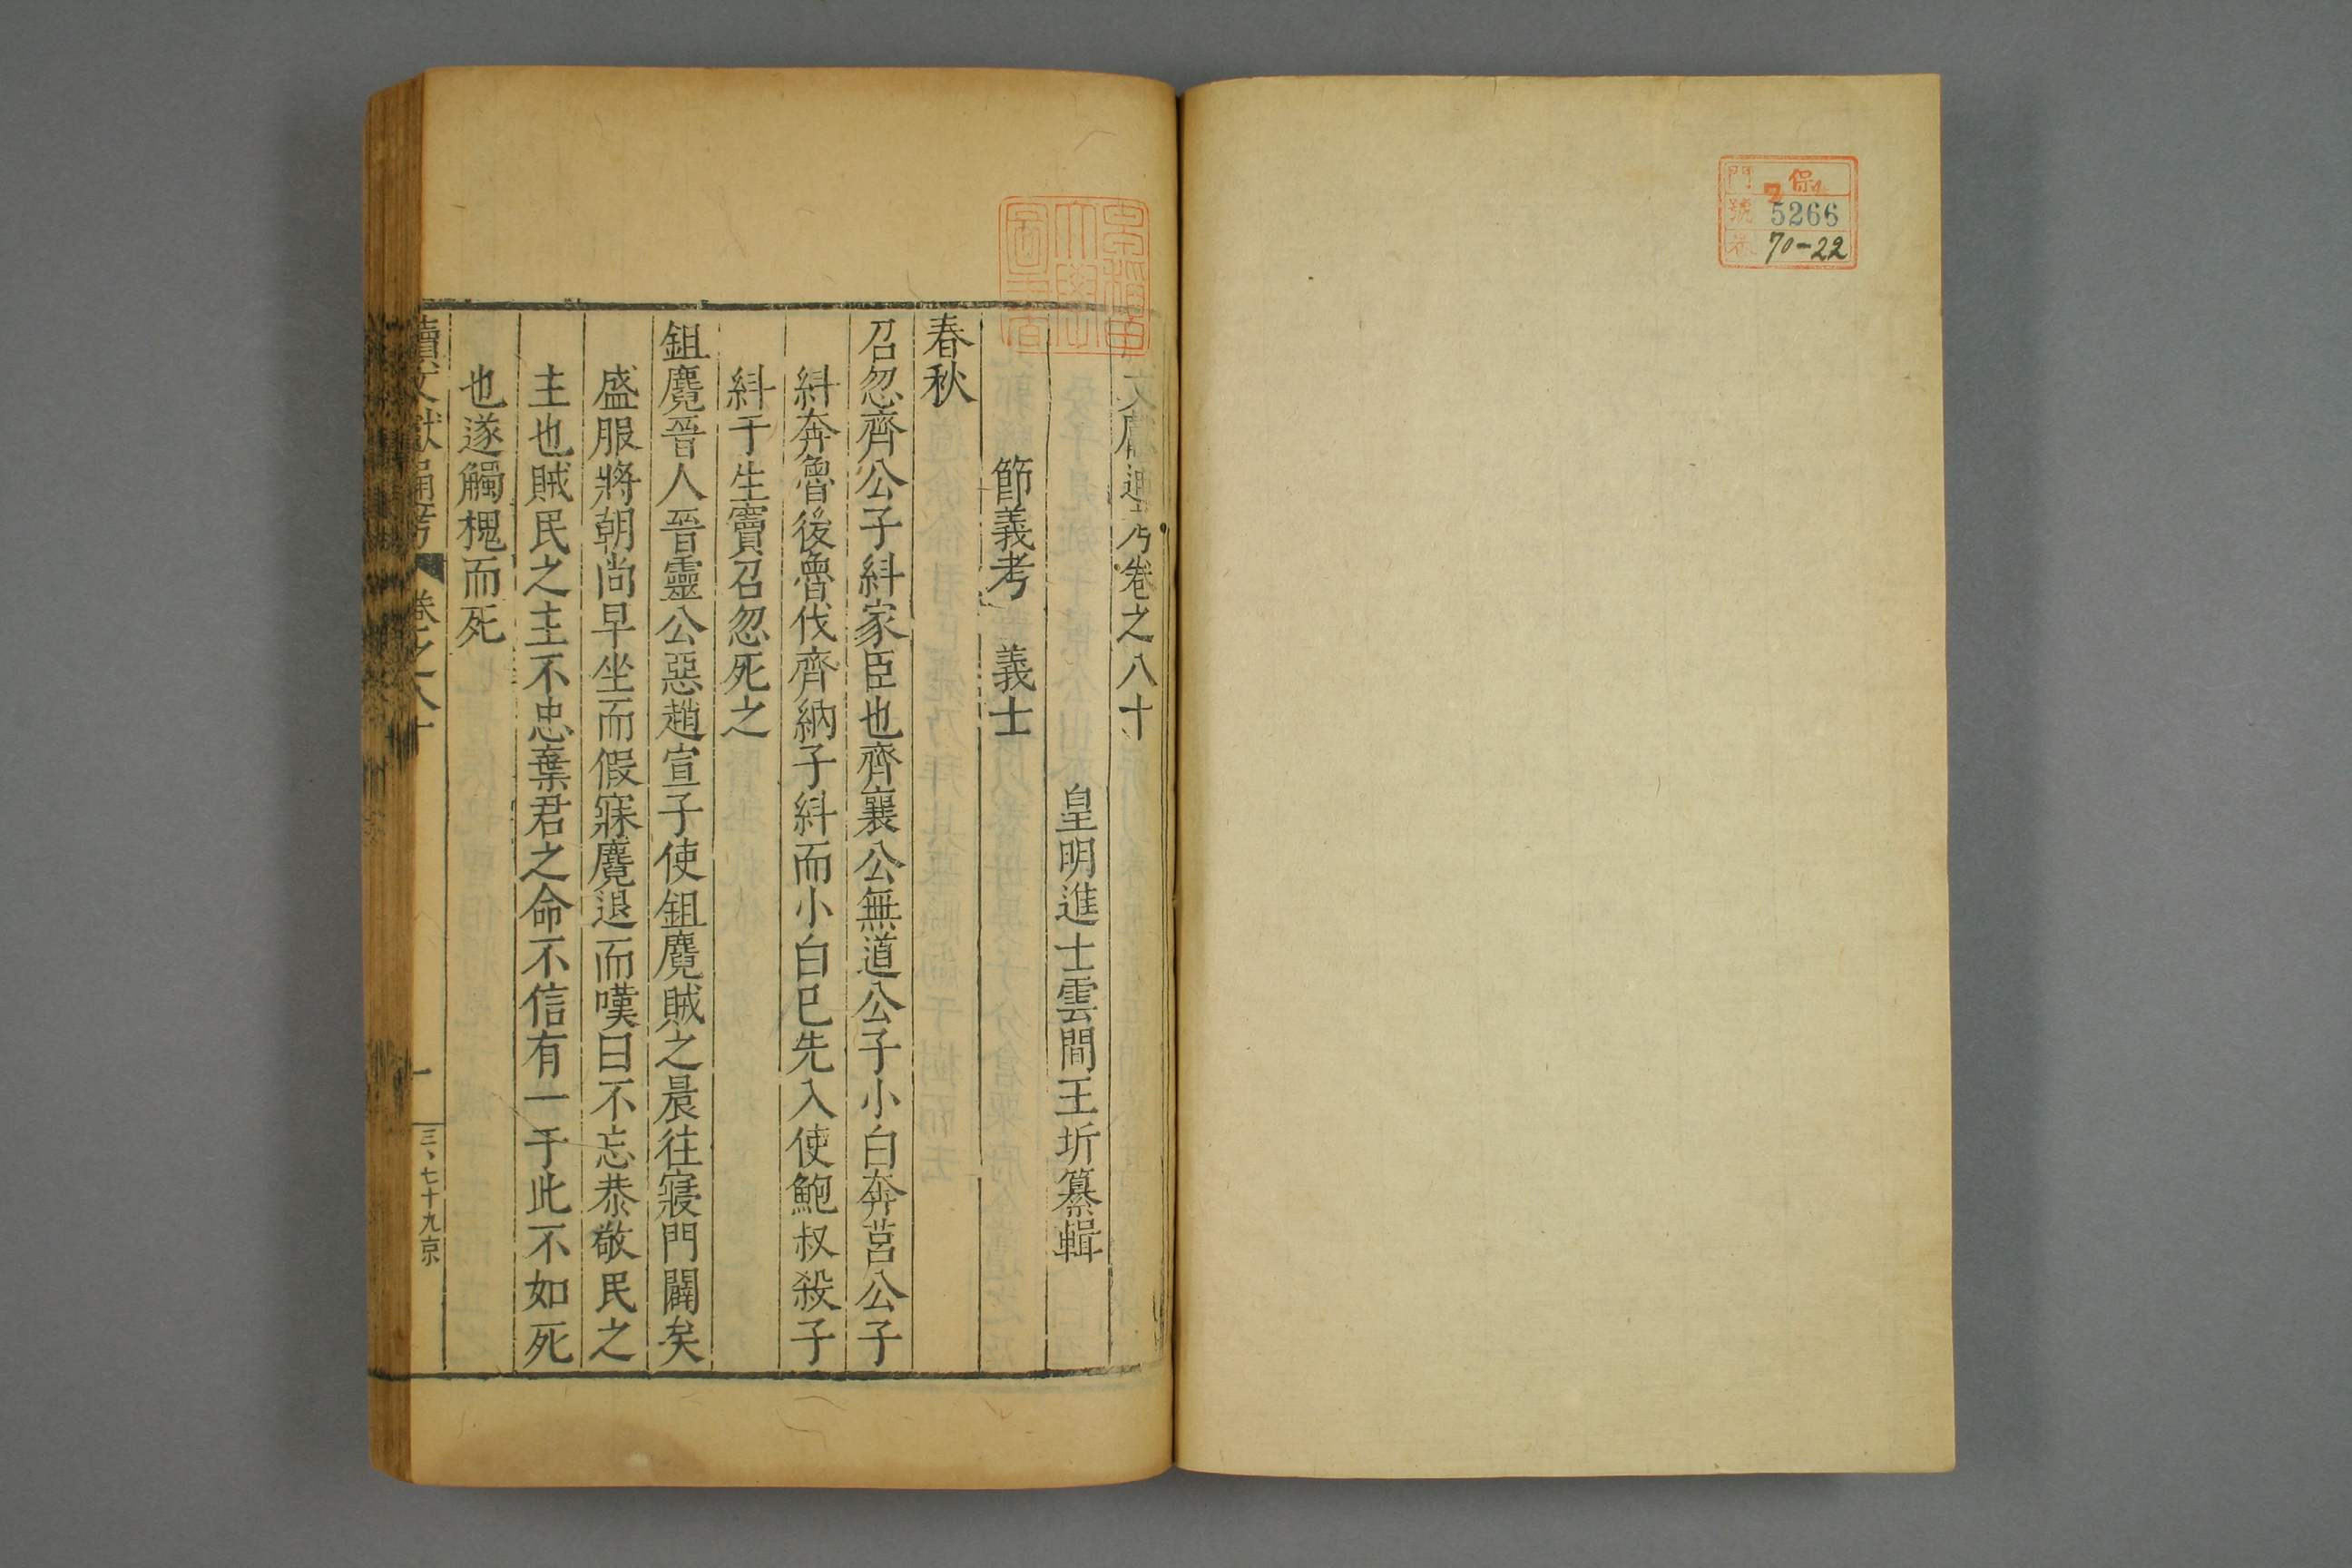 門 保
號 5266
卷 70-22
早稲田大學圖書
文獻通考卷之八十
皇明進士雲間王圻纂輯
節義考 義士
春秋
召忽齊公子糾家臣也齊襄公無道公子小白奔莒公子
糾奔魯後魯伐齊納子糾而小白已先入使鮑叔殺子
糾于生竇召忽死之
鉏麑晉人晉靈公惡趙宣子使鉏麑賊之晨往寢門闢矣
盛服將朝尚早坐而假寐麑退而嘆曰不忘恭敬民之
主也賊民之主不忠棄君之命不信有一于此不如死
也遂觸槐而死
續文獻通考 卷之八十 一 三、七十九京